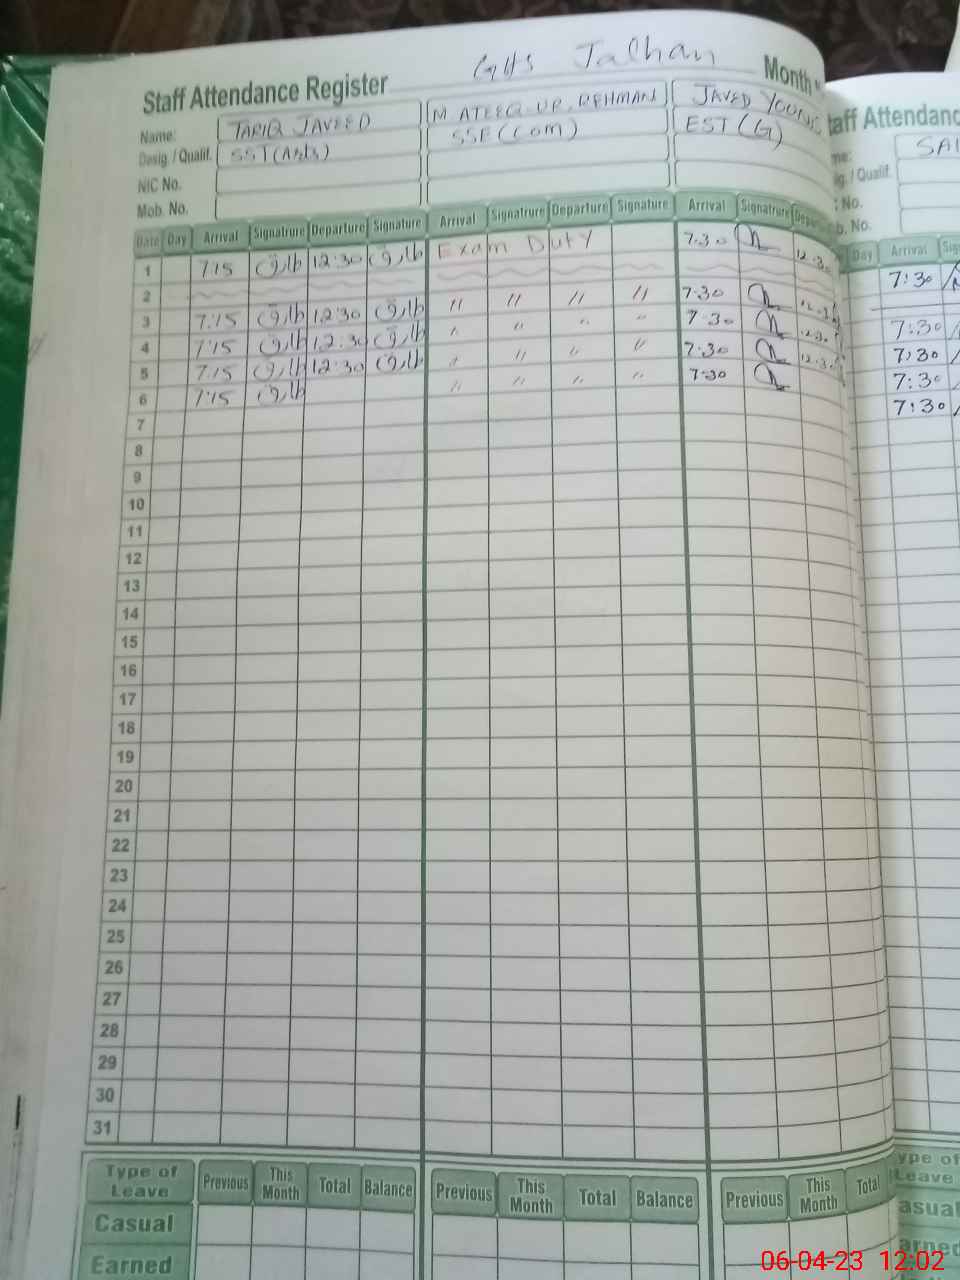 GHS Jalhan
Staff Attendance Register Month
Name: TARIQ JAVEED M ATEEQ UR REHMAN JAVED YOUNIS
Desig. / Qualif. SST(Arts) SSE(Com) EST(G)
NIC No.
Mob. No.
Date Day Arrival Signatrure Departure Signature Arrival Signatrure Departure Signature Arrival Signatrure
1 7:15 طارق 12:30 طارق Exam Duty 7:30 12:30
2
3 7:15 طارق 12:30 طارق " " " " 7:30 12:30
4 7:15 طارق 12:30 طارق " " " " 7:30 12:30
5 7:15 طارق 12:30 طارق " " " " 7:30 12:30
6 7:15 طارق " " " " 7:30
7
8
9
10
11
12
13
14
15
16
17
18
19
20
21
22
23
24
25
26
27
28
29
30
31
Type of Leave Previous This Month Total Balance Previous This Month Total Balance Previous This Month Total
Casual
Earned
taff Attendanc
me: SAI
ig. / Qualif.
No.
b. No.
Day Arrival Sig
7:30
7:30
7:30
7:30
7:30
ype of
Leave
asual
arned
06-04-23 12:02